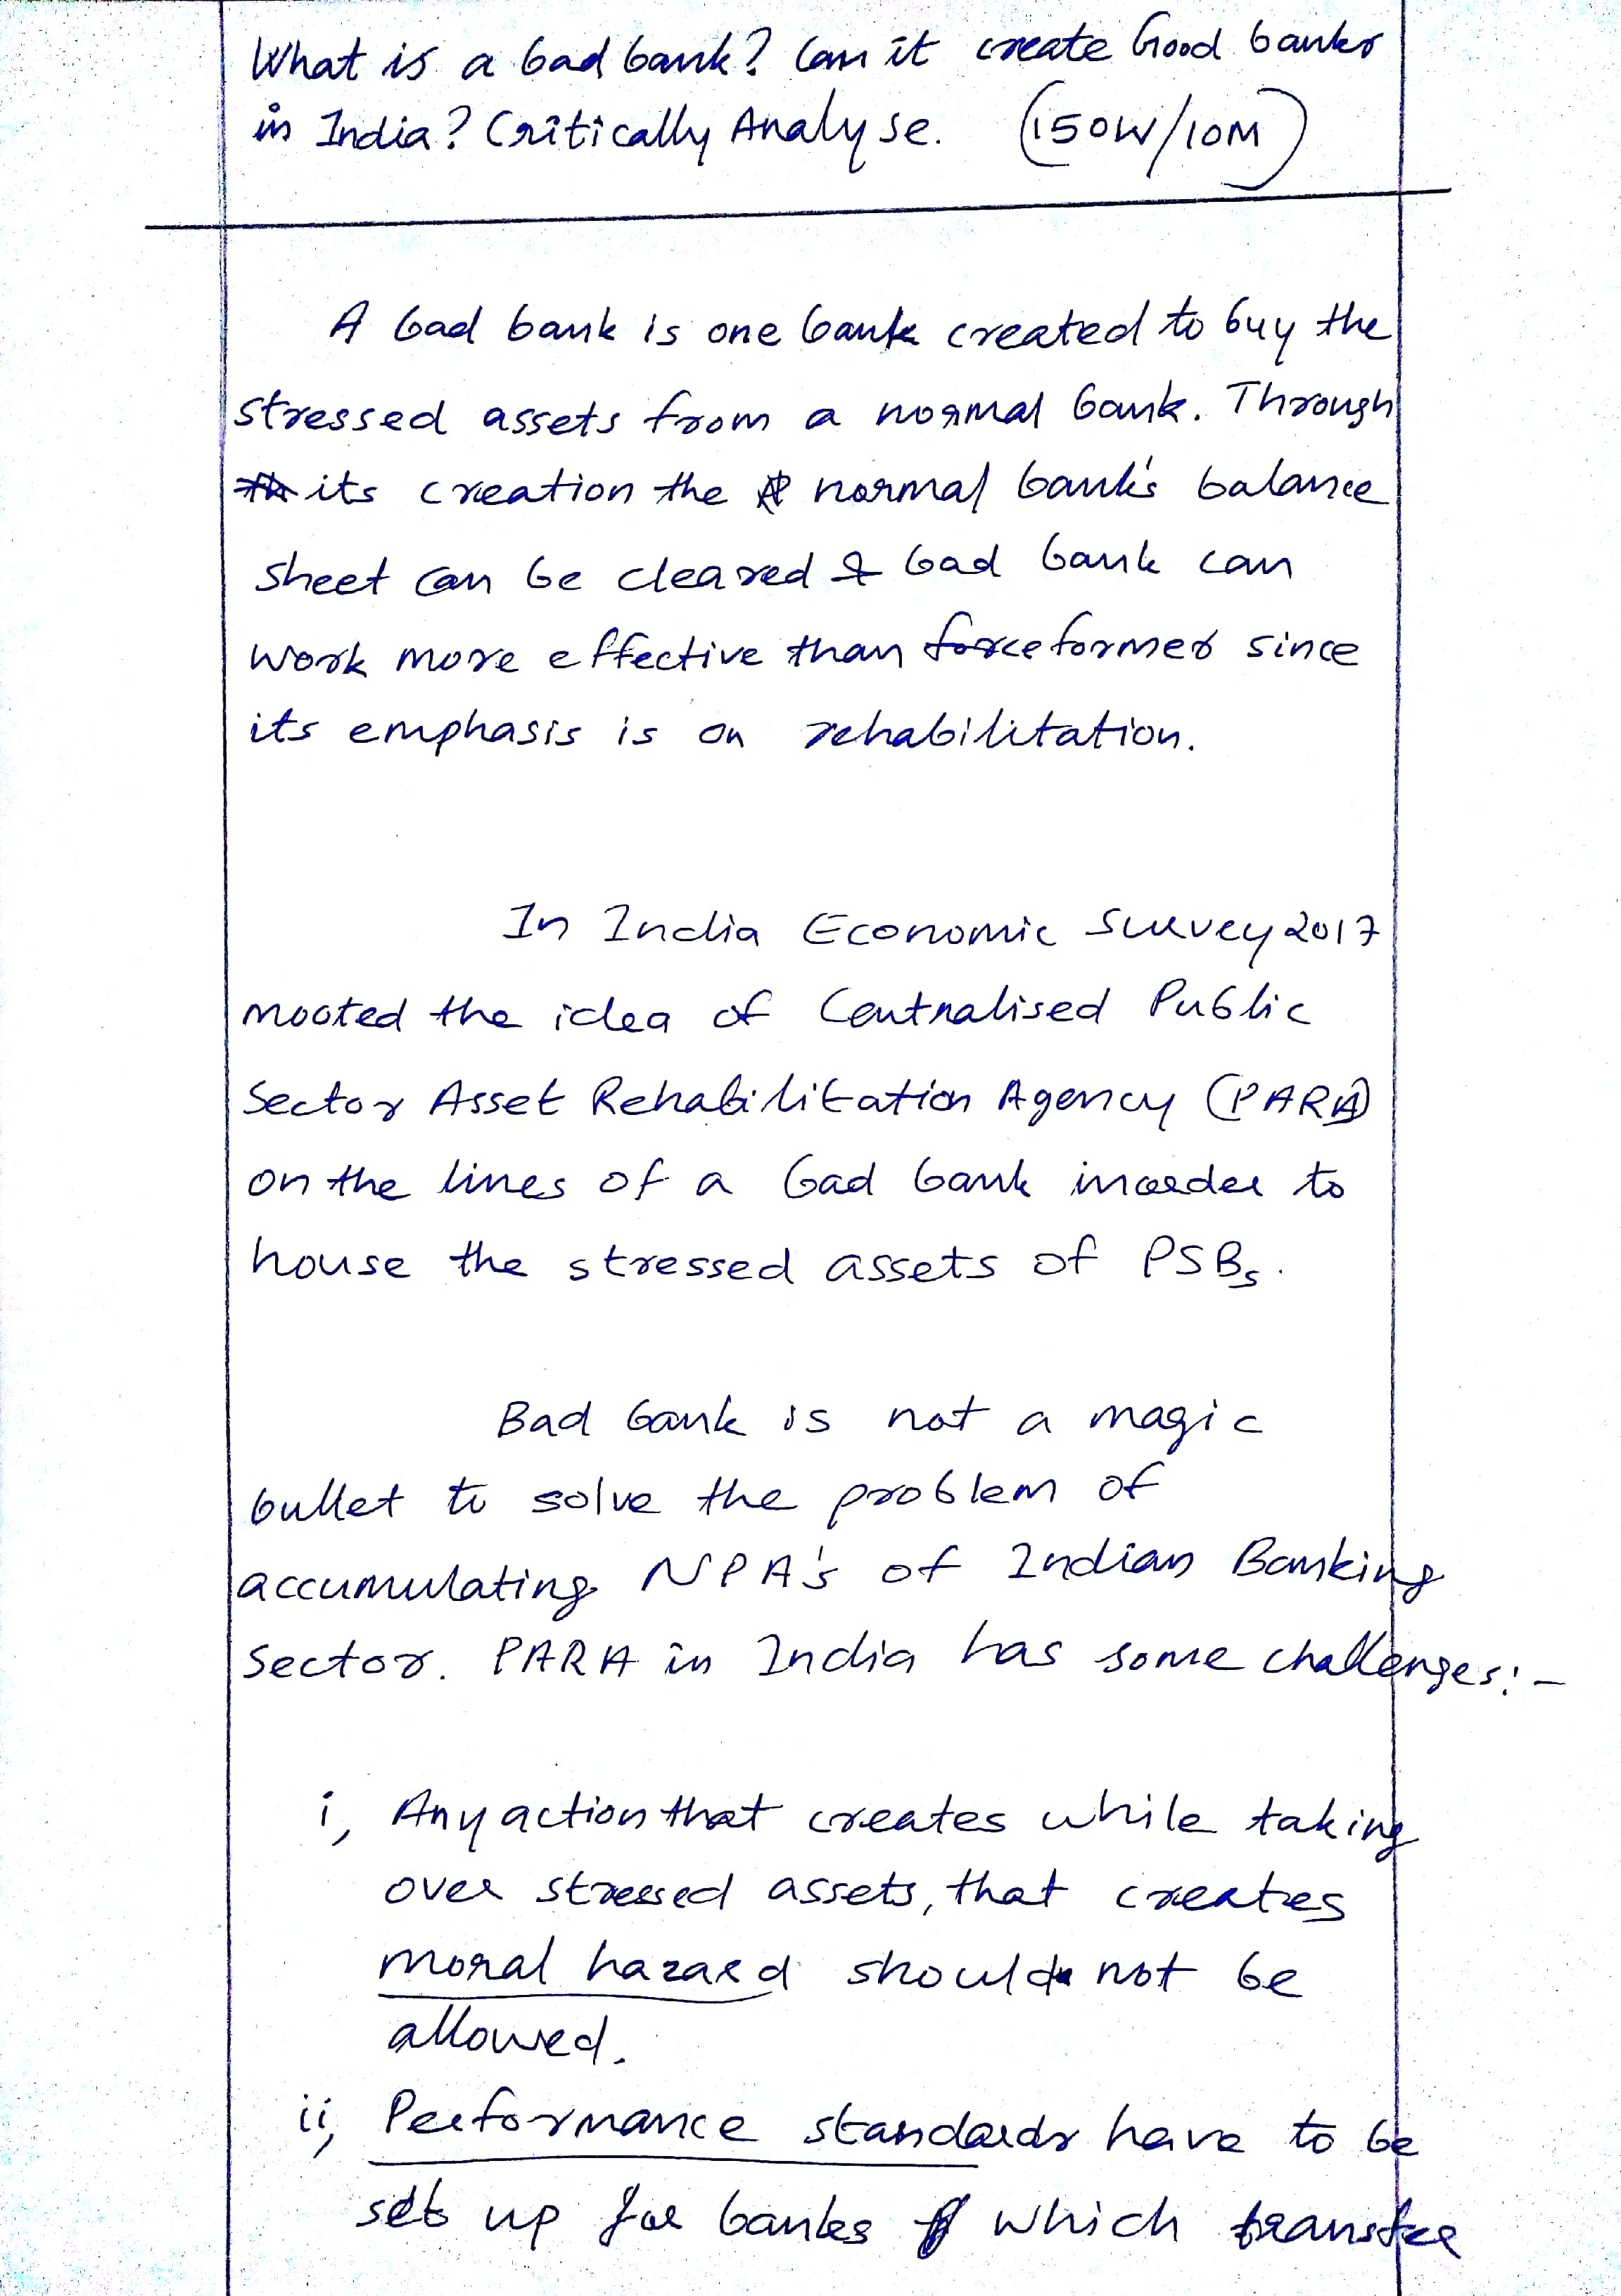 What is a bad bank? Can it create Good banks
in India? Critically Analyse. (150W/10M)
A bad bank is one bank created to buy the
stressed assets from a normal bank. Through
its creation the normal bank's balance
sheet can be cleared & bad bank can
work more effective than former since
its emphasis is on rehabilitation.
In India Economic Survey 2017
mooted the idea of Centralised Public
Sector Asset Rehabilitation Agency (PARA)
on the lines of a bad bank inorder to
house the stressed assets of PSBs.
Bad bank is not a magic
bullet to solve the problem of
accumulating NPA's of Indian Banking
Sector. PARA in India has some challenges:-
i, Any action that creates while taking
over stressed assets, that creates
moral hazard should not be
allowed.
ii, Performance standards have to be
set up for banks which transfer